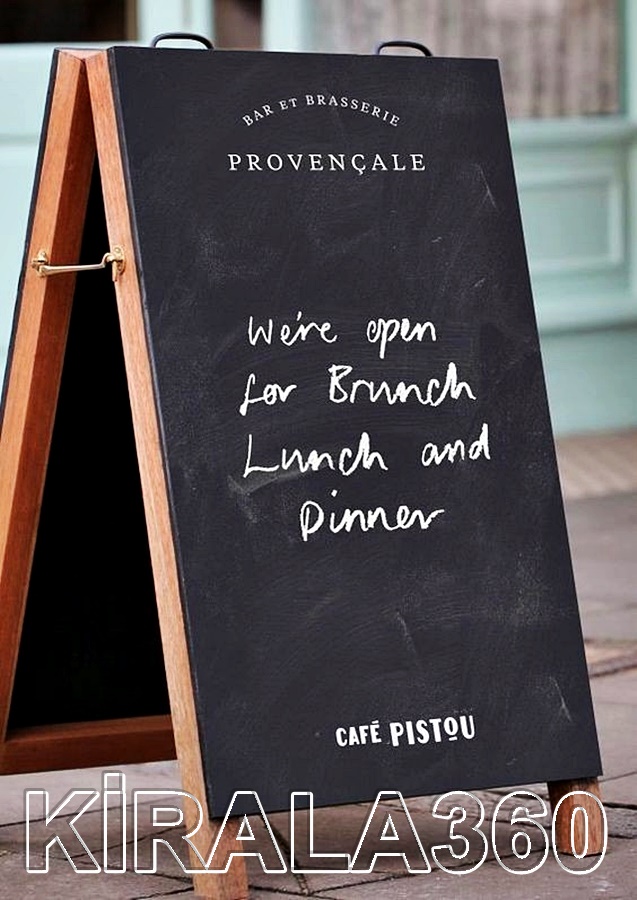 BAR ET BRASSERIE
PROVENÇALE
We're open
for Brunch
Lunch and
Dinner
CAFÉ PISTOU
KİRALA360